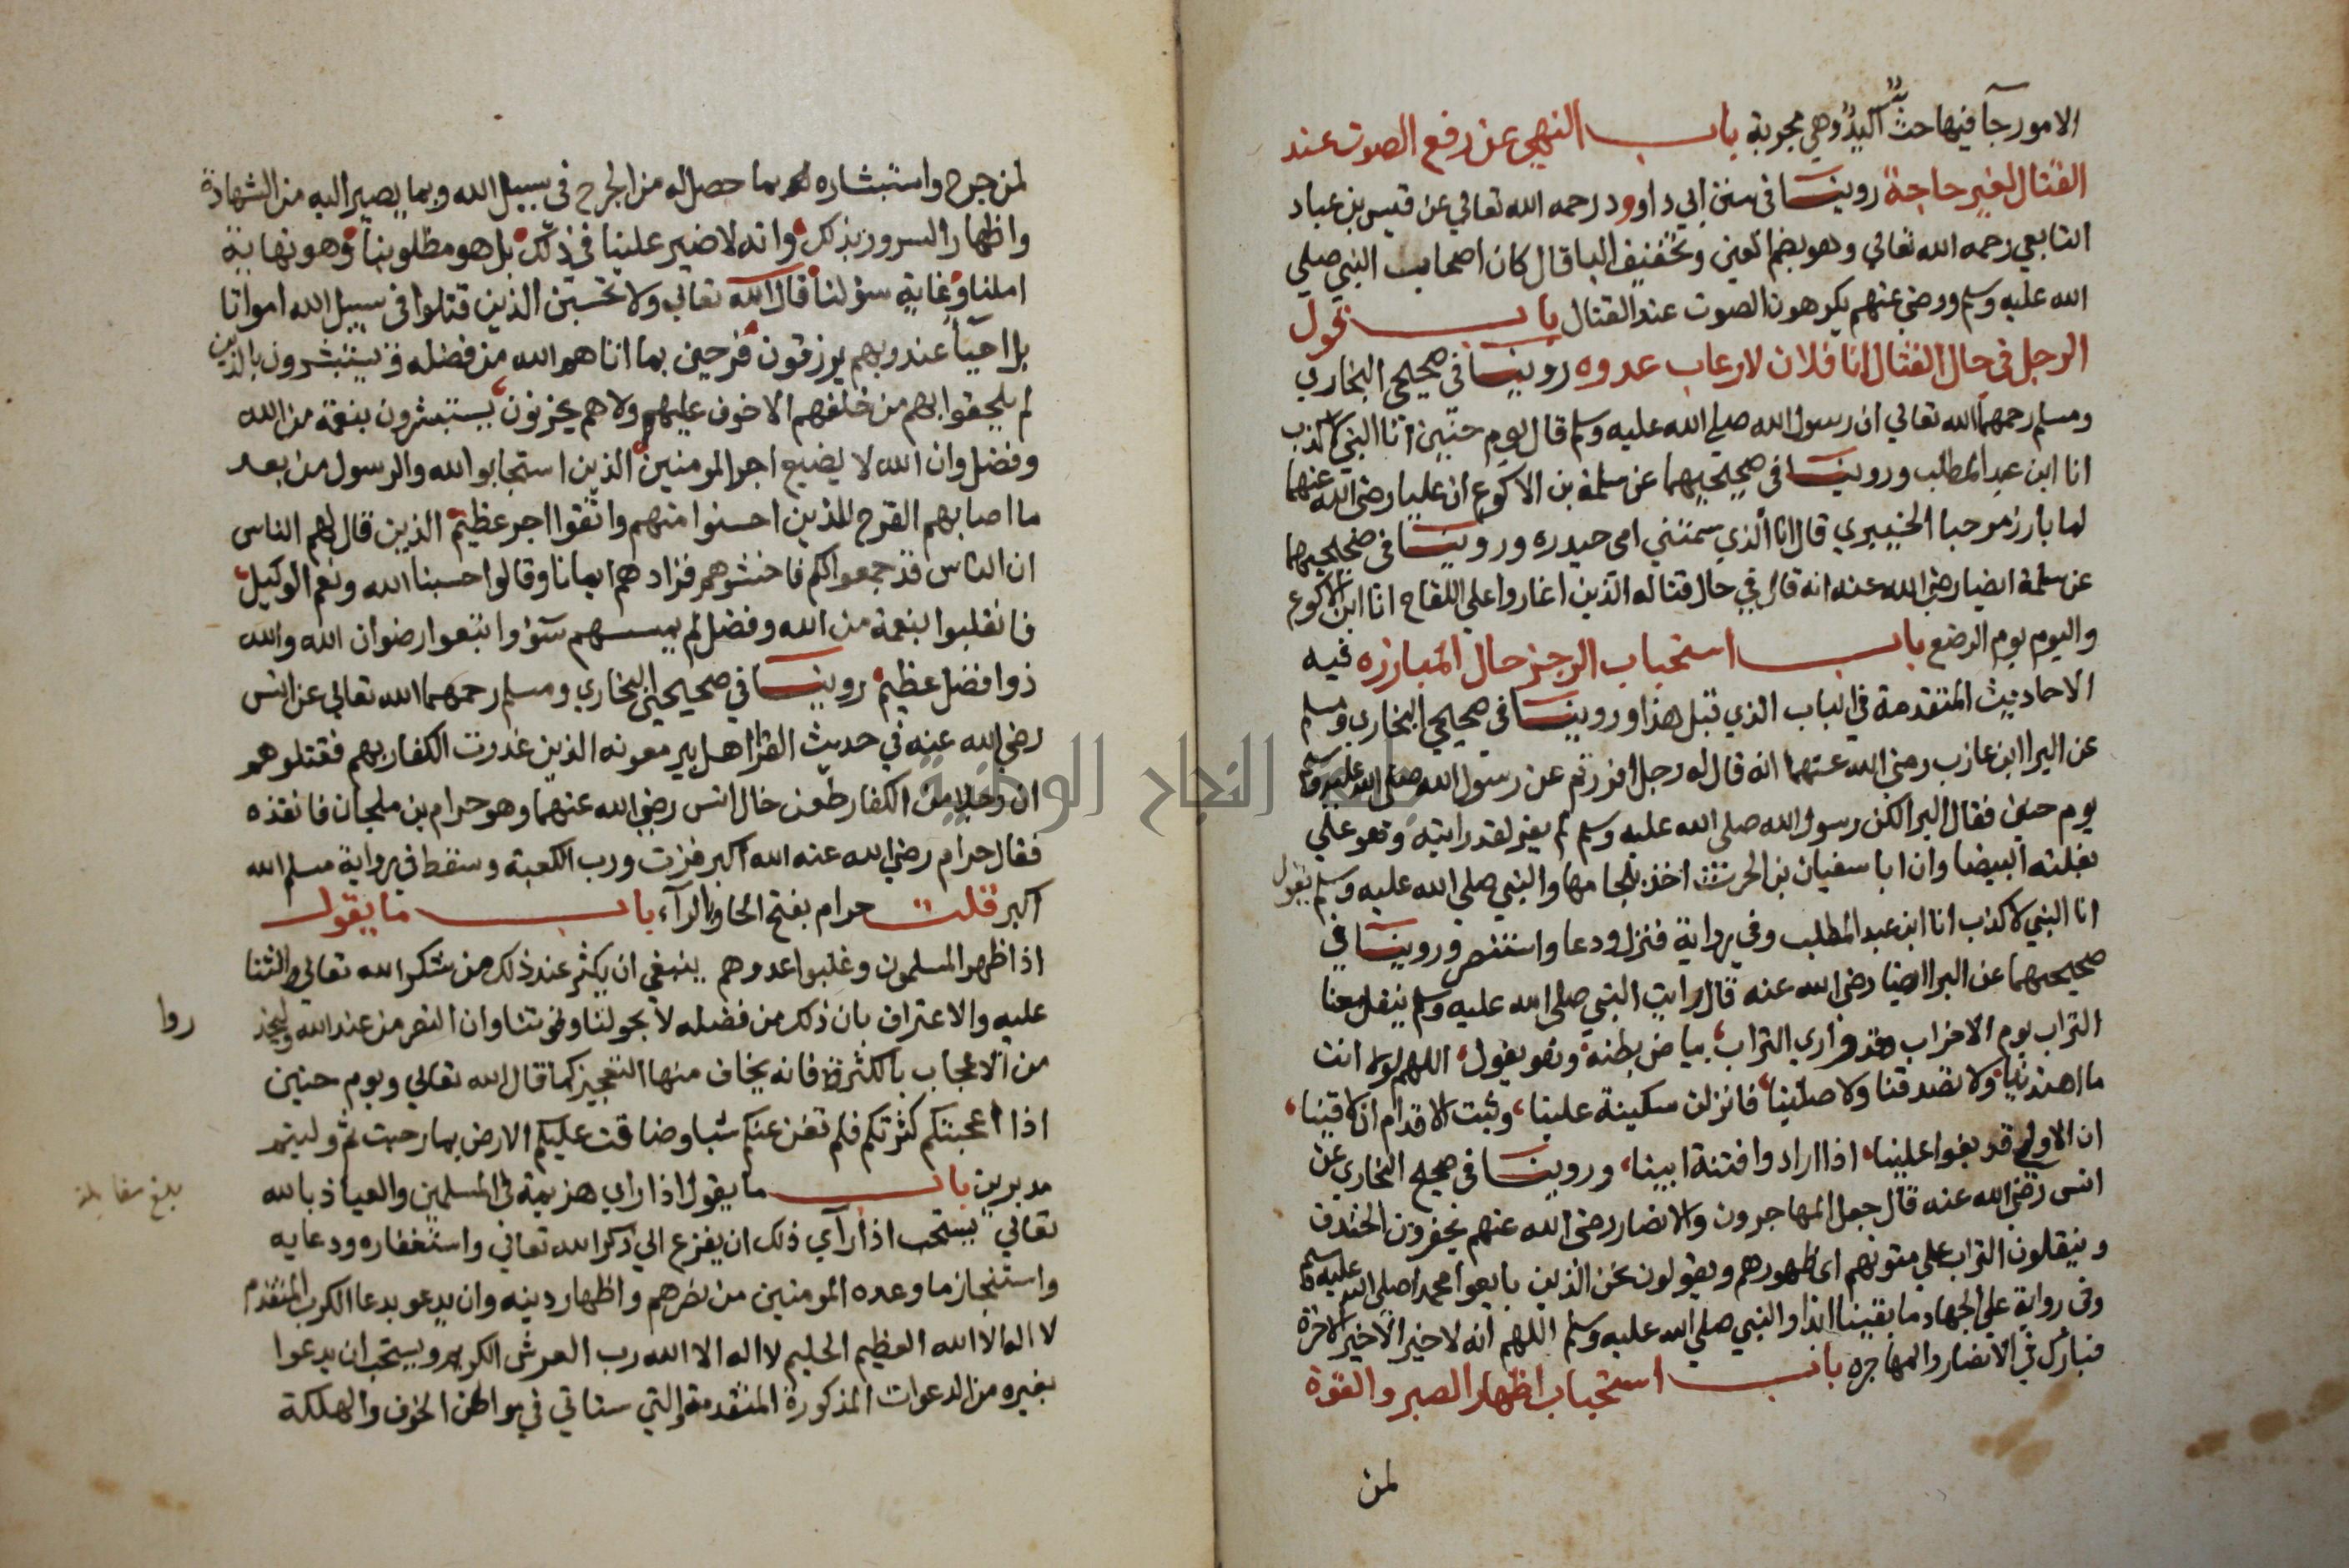 الامور جآ فيها حث اكيد وهي مجربة باب النهي عن رفع الصوت عند
القتال لغير حاجة روينا في سنن ابي داوود رحمه الله تعالي عن قيس بن عباد
التابعي رحمه الله تعالي وهو بضم العين وتخفيف البا قال كان اصحاب النبي صلي
الله عليه وسلم ورضي عنهم يكرهون الصوت عند القتال باب قول
الرجل في حال القتال انا فلان لارعاب عدوه روينا في صحيحي البخاري
ومسلم رحمهما الله تعالي ان رسول الله صلي الله عليه وسلم قال يوم حنين انا النبي لا كذب
انا ابن عبد المطلب وروينا في صحيحيهما عن سلمة بن الاكوع ان عليا رضي الله عنهما
لما بارز مرحبا الخيبري قال انا الذي سمتني امي حيدره وروينا في صحيحيهما
عن سلمة ايضا رضي الله عنه انه قال في حال قتاله الذين اغاروا علي اللقاح انا ابن الاكوع
واليوم يوم الرضع باب استحباب الرجز حال المبارزه فيه
الاحاديث المتقدمة في الباب الذي قبل هذا وروينا في صحيحي البخاري ومسلم
عن البرا ابن عازب رضي الله عنهما انه قال له رجل افررتم عن رسول الله صلي الله عليه وسلم
يوم حنين فقال البرا لكن رسول الله صلي الله عليه وسلم لم يفر لقد رايته وهو علي
بغلته البيضا وان ابا سفيان بن الحرث اخذ بلجامها والنبي صلي الله عليه وسلم يقول
انا النبي لا كذب انا ابن عبد المطلب وفي رواية فنزل ودعا واستنصر وروينا في
صحيحيهما عن البرا ايضا رضي الله عنه قال رايت النبي صلي الله عليه وسلم ينقل معنا
التراب يوم الاحزاب وقد واري التراب بياض بطنه وهو يقول اللهم لولا انت
ما اهتدينا ولا تصدقنا ولا صلينا فانزلن سكينة علينا وثبت الاقدام ان لاقينا
ان الاولي قد بغوا علينا اذا ارادوا فتنة ابينا وروينا في صحيح البخاري عن
انس رضي الله عنه قال جعل المهاجرون والانصار رضي الله عنهم يحفرون الخندق
وينقلون التراب علي متونهم اي ظهورهم ويقولون نحن الذين بايعوا محمدا صلي الله عليه وسلم
وفي رواية علي الجهاد ما بقينا ابدا والنبي صلي الله عليه وسلم اللهم انه لا خير الا خير الاخرة
فبارك في الانصار والمهاجره باب استحباب اظهار الصبر والقوة
لمن
لمن جرح واستبشاره بما حصل له من الجرح في سبيل الله وبما يصير اليه من الشهادة
واظهار السرور بذلك وانه لا ضير علينا في ذلك بل هو مطلوبنا وهو نهاية
املنا وغاية سؤلنا قال الله تعالي ولا تحسبن الذين قتلوا في سبيل الله امواتا
بل احيآ عند ربهم يرزقون فرحين بما اتاهم الله من فضله ويستبشرون بالذين
لم يلحقوا بهم من خلفهم الا خوف عليهم ولا هم يحزنون يستبشرون بنعمة من الله
وفضل وان الله لا يضيع اجر المومنين الذين استجابوا لله والرسول من بعد
ما اصابهم القرح للذين احسنوا منهم واتقوا اجر عظيم الذين قال لهم الناس
ان الناس قد جمعوا لكم فاخشوهم فزادهم ايمانا وقالوا حسبنا الله ونعم الوكيل
فانقلبوا بنعمة من الله وفضل لم يمسسهم سؤ واتبعوا رضوان الله والله
ذوا فضل عظيم روينا في صحيحي البخاري ومسلم رحمهما الله تعالي عن انس
رضي الله عنه في حديث القرا اهل بير معونه الذين غدرت الكفار بهم فقتلوهم
ان رجلا من الكفار طعن خال انس رضي الله عنهما وهو حرام بن ملحان فانفذه
فقال حرام رضي الله عنه الله اكبر فزت ورب الكعبة وسقط في رواية مسلم الله
اكبر قلت حرام بفتح الحا والرآء باب ما يقول
اذا ظهر المسلمون وغلبوا عدوهم ينبغي ان يكثر عند ذلك من شكر الله تعالي والثنا
عليه والاعتراف بان ذلك من فضله لا بحولنا وقوتنا وان النصر من عند الله وليحذ
روا
من الاعجاب بالكثرة فانه يخاف منها التعجيز كما قال الله تعالي ويوم حنين
اذا اعجبتكم كثرتكم فلم تغن عنكم شيا وضاقت عليكم الارض بما رحبت ثم وليتم
مدبرين باب ما يقول اذا راي هزيمة في المسلمين والعياذ بالله
بلغ مقابلة
تعالي يستحب اذا رآي ذلك ان يفزع الي ذكر الله تعالي واستغفاره ودعايه
واستنجاز ما وعده المومنين من نصرهم واظهار دينه وان يدعو بدعا الكرب المتقدم
لا اله الا الله العظيم الحليم لا اله الا الله رب العرش الكريم ويستحب ان يدعوا
بغيره من الدعوات المذكورة المتقدمة والتي ستاتي في مواطن الخوف والهلكة
النجاح الوطنية